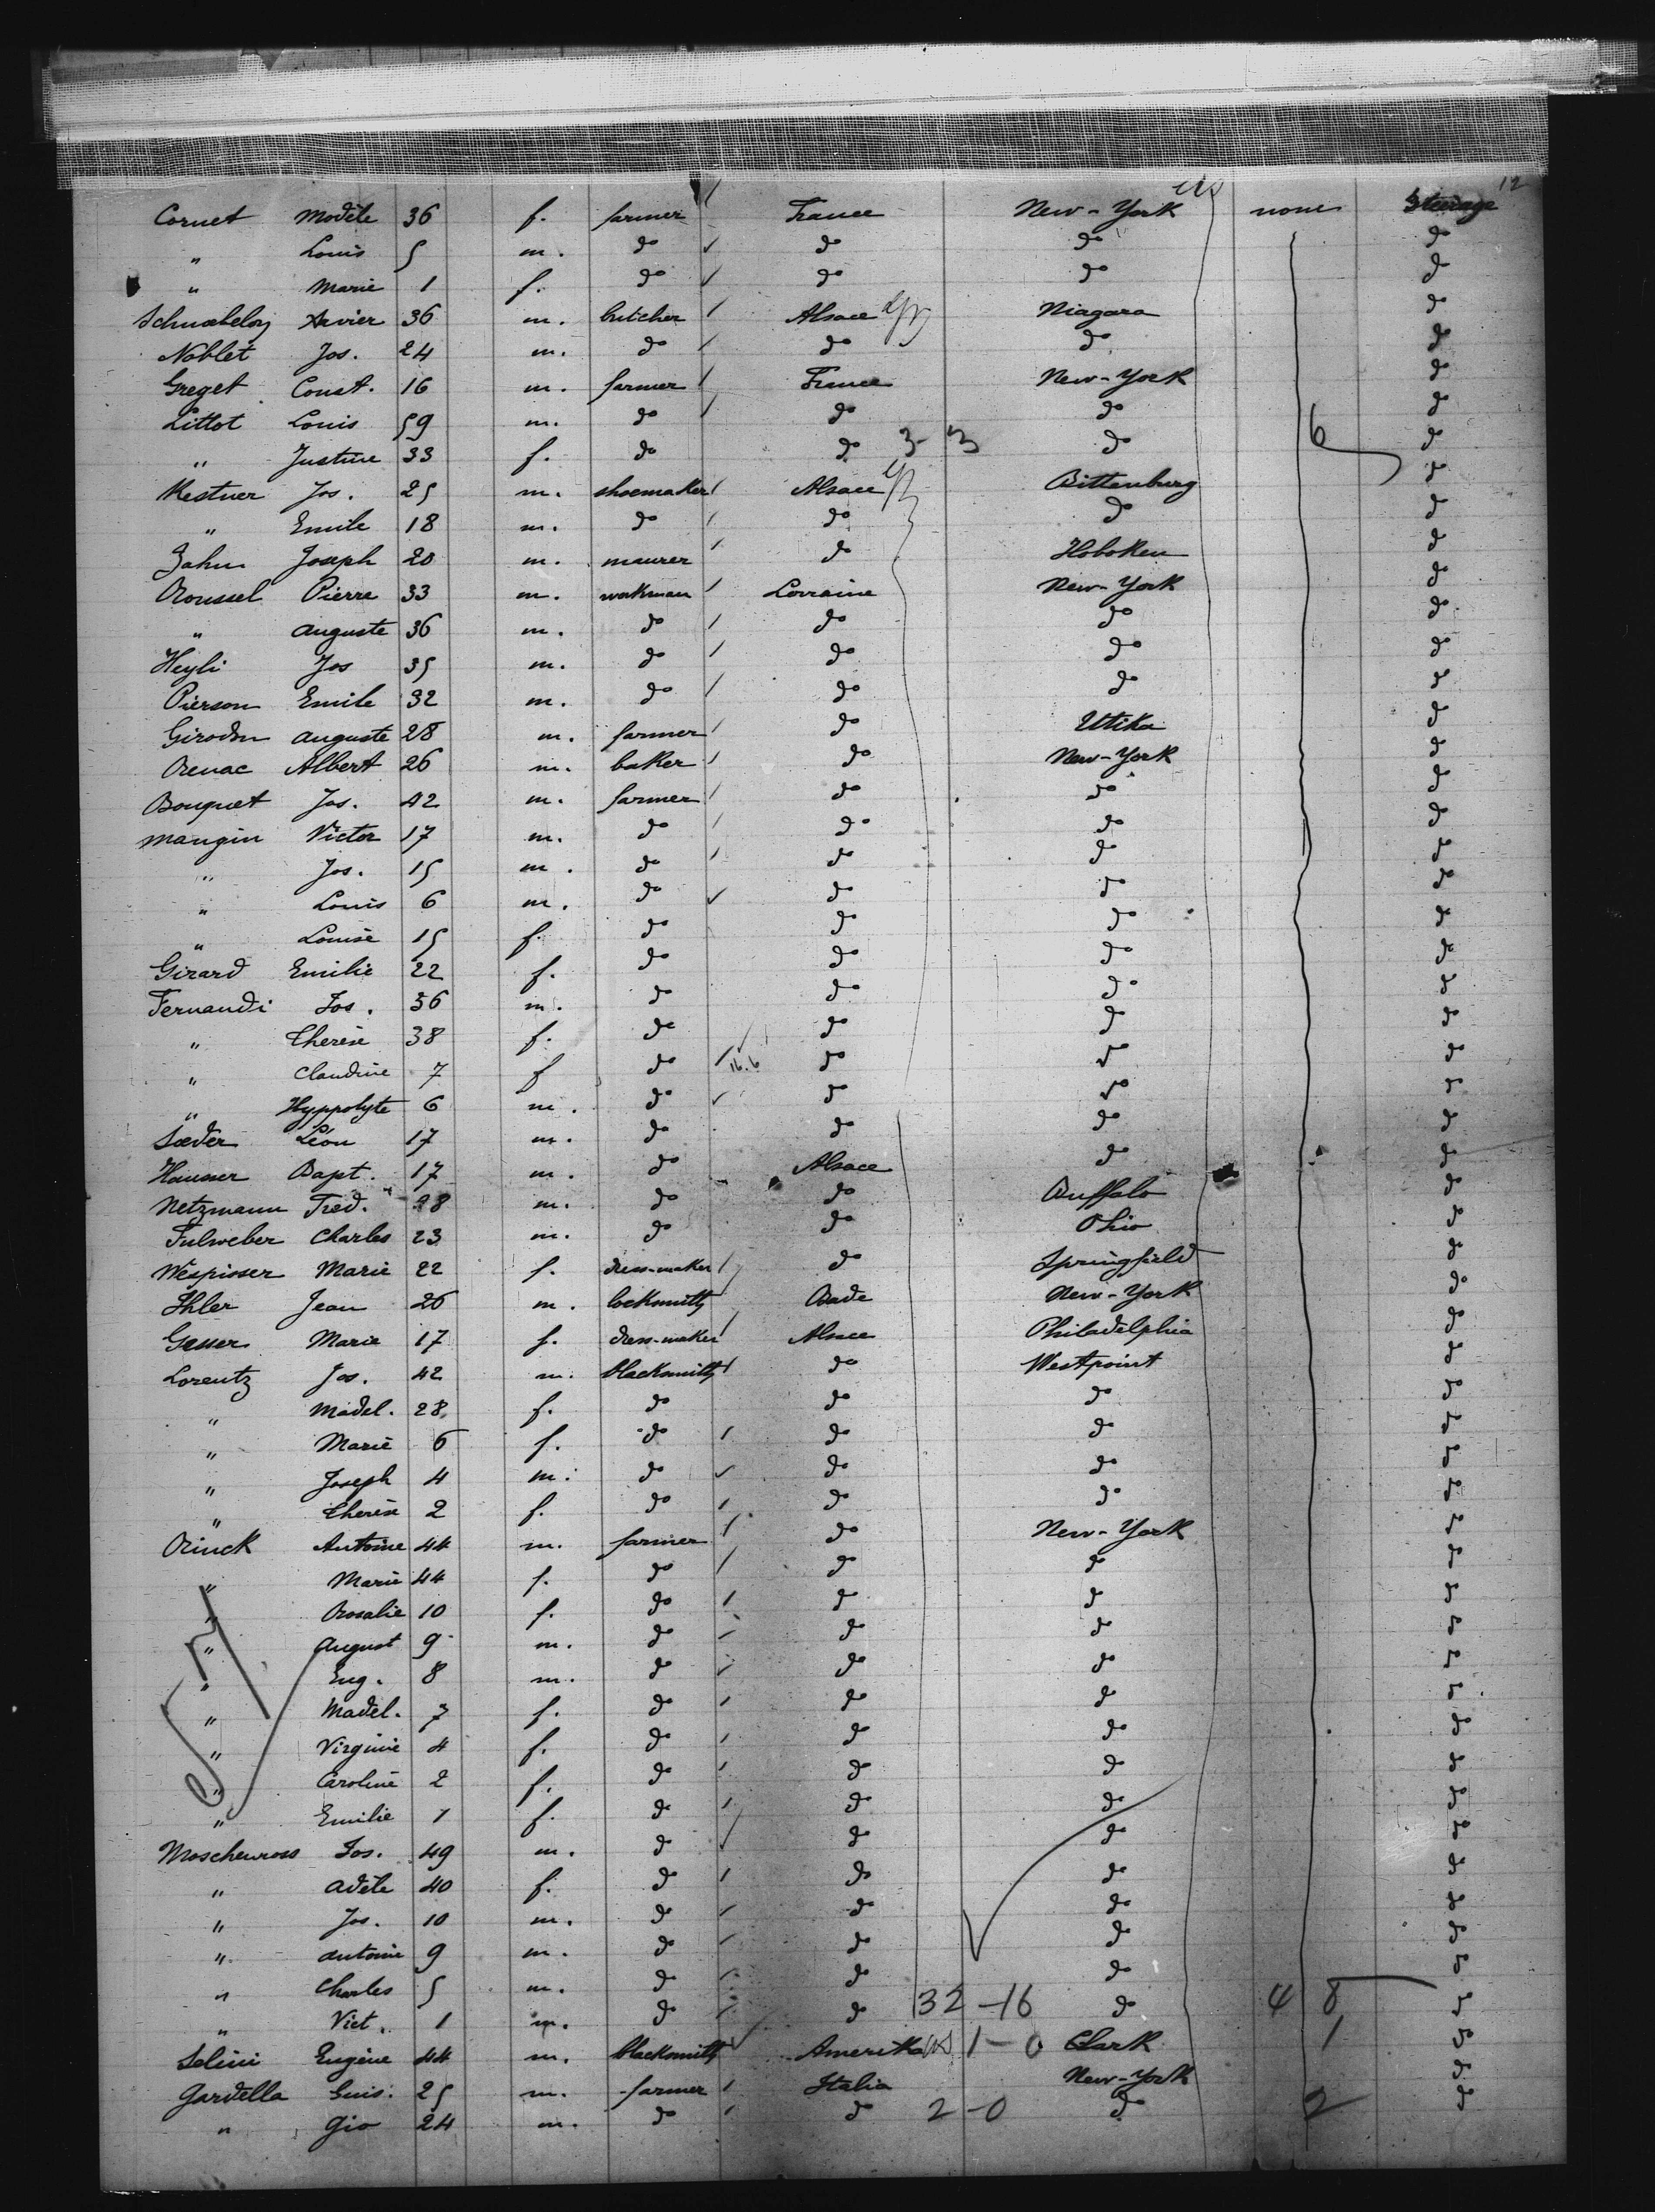 12
Cornet Modèle 36 f. farmer France New-York none Steerage
" Louis 5 m. do do do do
" Marie 1 f. do do do do
Schnœbelon Xavier 36 m. butcher Alsace Niagara do
Noblet Jos. 24 m. do do do do
Greget Const. 16 m. farmer France New-York do
Littot Louis 59 m. do do do do
" Justine 33 f. do do 3-3 do 6 do
Kestner Jos. 25 m. shoemaker Alsace Bittenburg do
" Emile 18 m. do do do do
Zahn Joseph 20 m. maurer do Hoboken do
Roussel Pierre 33 m. workman Lorraine New-York do
" Auguste 36 m. do do do do
Heyli Jos 35 m. do do do do
Pierson Emile 32 m. do do do do
Girodon Auguste 28 m. farmer do Utika do
Renac Albert 26 m. baker do New-York do
Bouquet Jos. 42 m. farmer do do do
Mangin Victor 17 m. do do do do
" Jos. 15 m. do do do do
" Louis 6 m. do do do do
" Louise 15 f. do do do do
Girard Emilie 22 f. do do do do
Fernandi Jos. 36 m. do do do do
" Therèse 38 f. do do do do
" Claudine 7 f do do do do
" Hyppolyte 6 m. do do do do
Sæder Léon 17 m. do do do do
Hausser Bapt. 17 m. do Alsace do do
Netzmann Fred. 28 m. do do Buffalo do
Fulweber Charles 23 m. do do Ohio do
Wespisser Marie 22 f. dress-maker do Springfield do
Ihler Jean 26 m. locksmith Bade New-York do
Gasser Marie 17 f. dress-maker Alsace Philadelphia do
Lorentz Jos. 42 m. blacksmith do Westpoint do
" Madel. 28 f. do do do do
" Marie 6 f. do do do do
" Joseph 4 m. do do do do
" Therèse 2 f. do do do do
Rinck Antoine 44 m. farmer do New-York do
" Marie 44 f. do do do do
" Rosalie 10 f. do do do do
" August 9 m. do do do do
" Eug. 8 m. do do do do
" Madel. 7 f. do do do do
" Virginie 4 f. do do do do
" Caroline 2 f. do do do do
" Emilie 1 f. do do do do
Moschenross Jos. 49 m. do do do do
" Adèle 40 f. do do do do
" Jos. 10 m. do do do do
" Antoine 9 m. do do do do
" Charles 5 m. do do do do
" Vict. 1 m. do do 32-16 do 48 do
Selini Eugène 44 m. blacksmith Amerika US 1-0 Clark 1 do
Gardella Guis. 25 m. farmer Italia New-York do
" Gio 24 m. do do 2-0 do 2 do